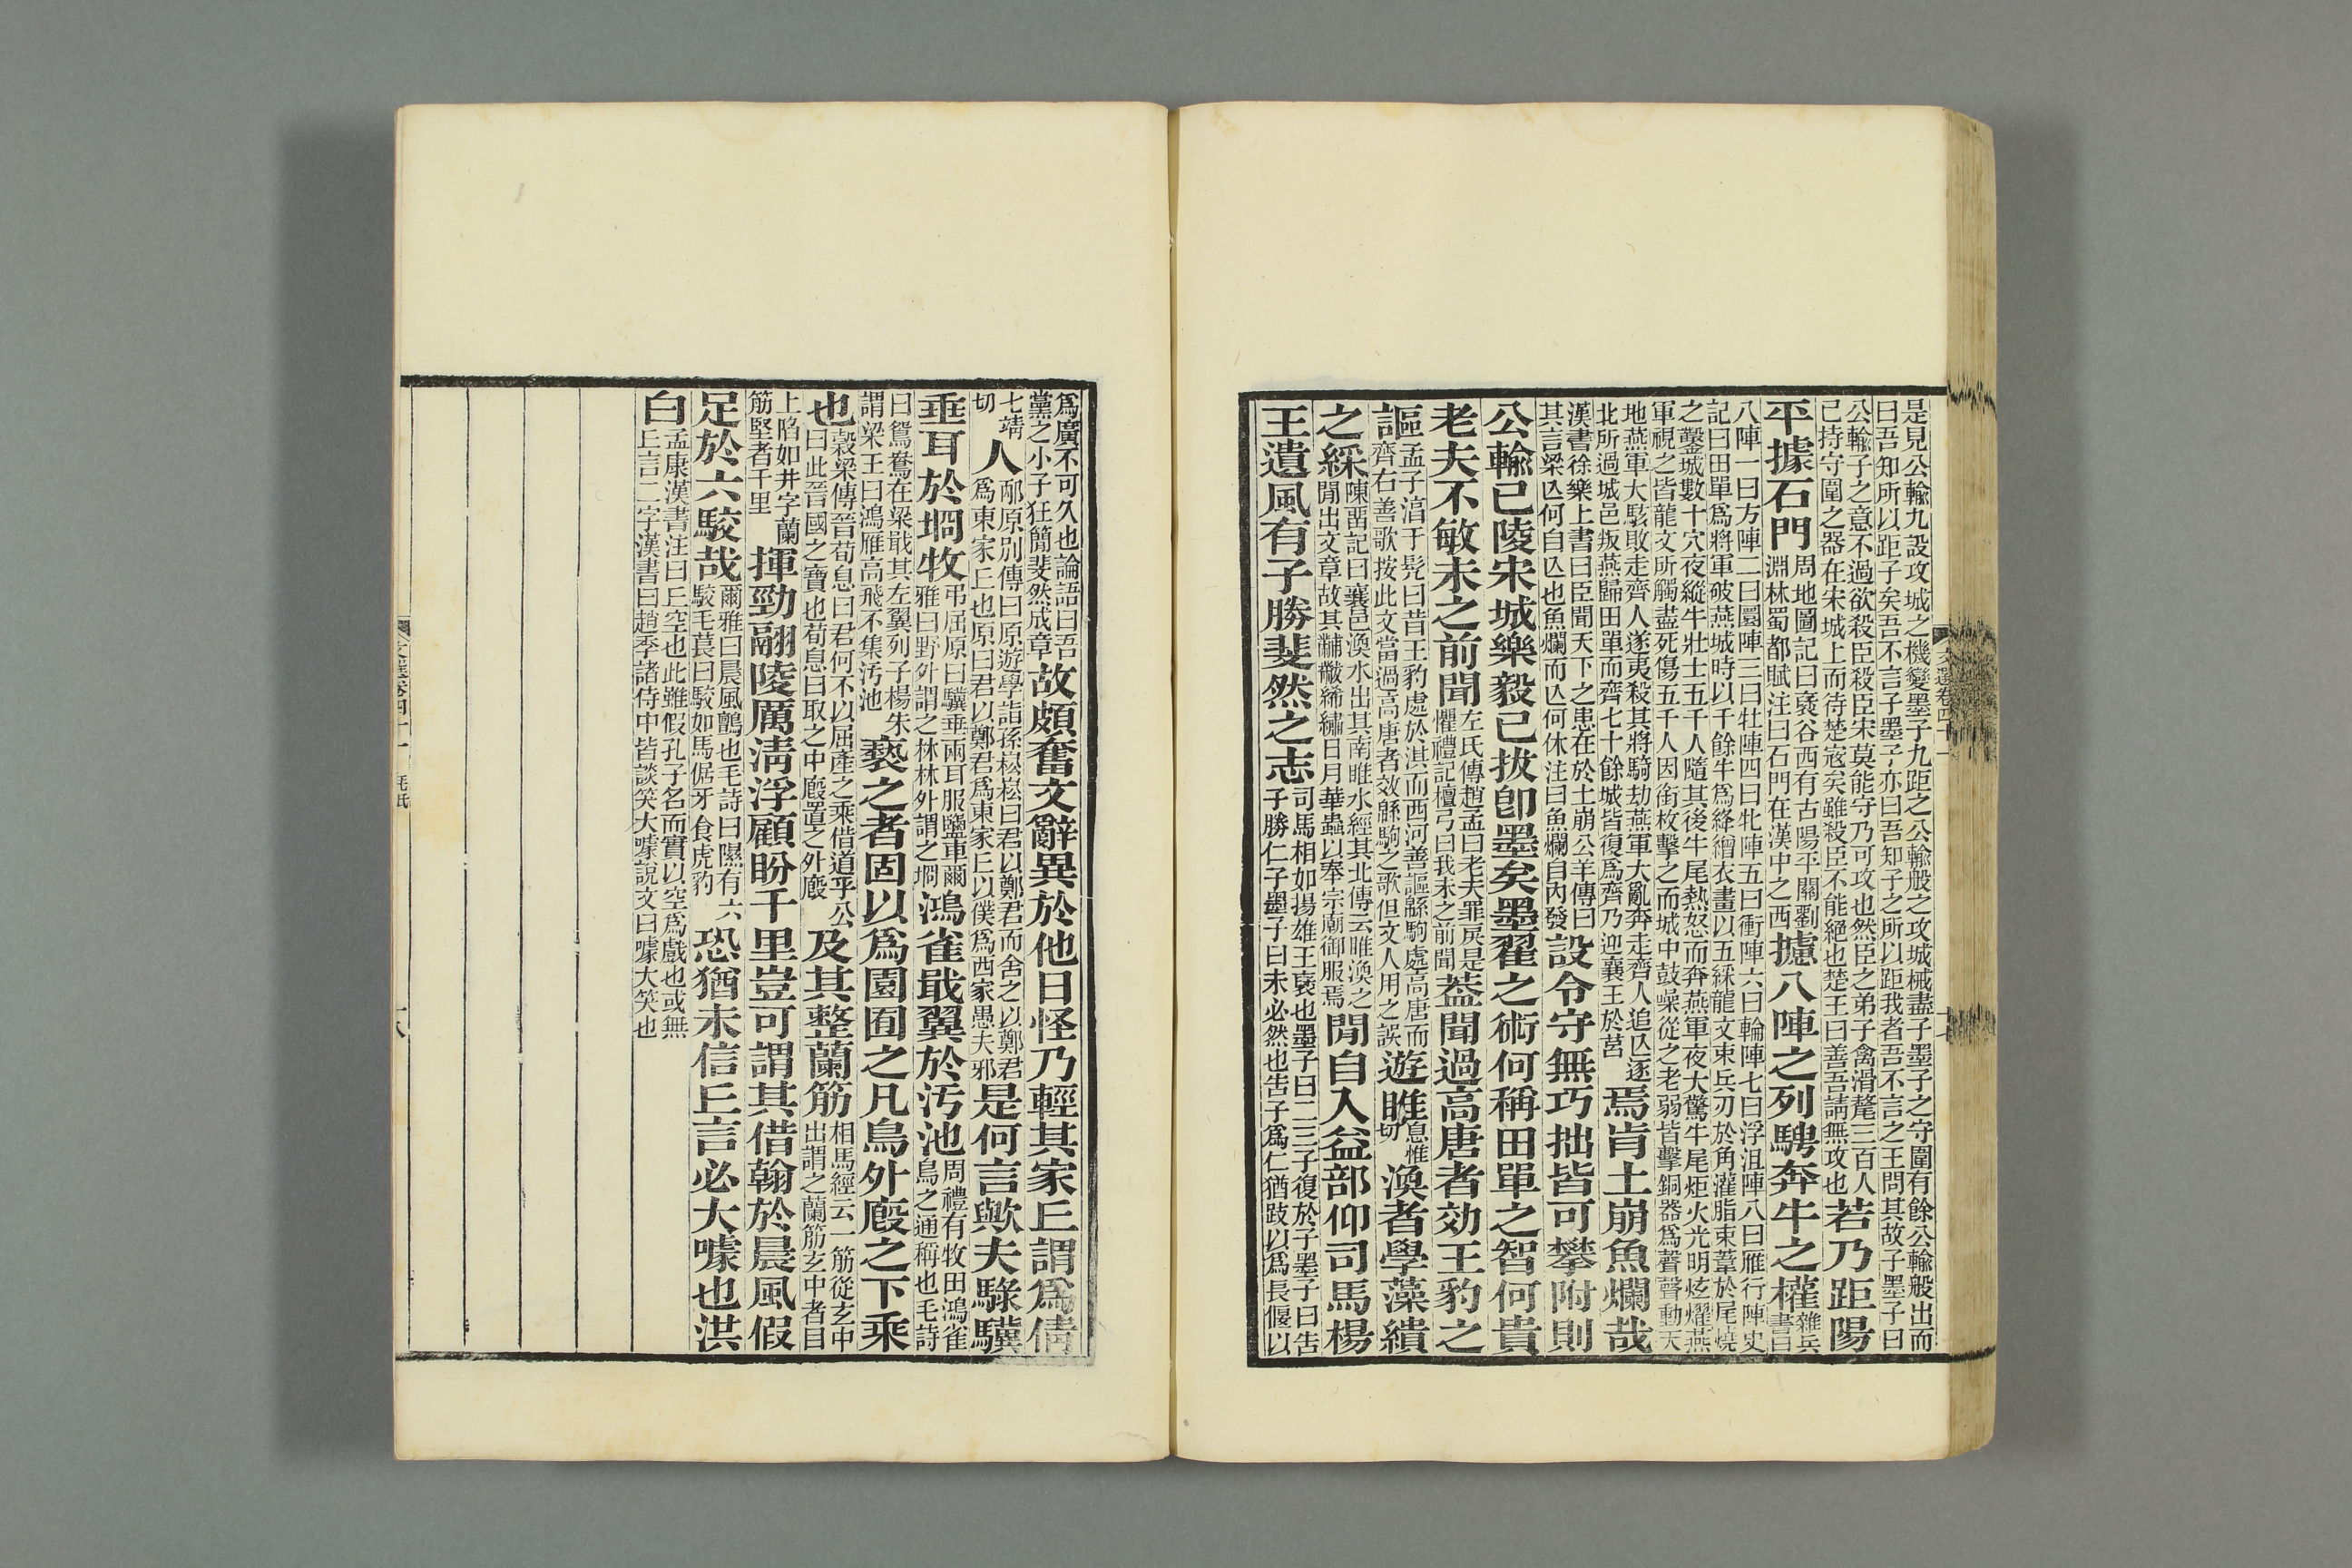 是見公輸九設攻城之機變墨子九距之公輸般之攻城械盡子墨子之守圍有餘公輸般出而
曰吾知所以距子矣吾不言子墨子亦曰吾知子之所以距我者吾不言之王問其故子墨子曰
公輸子之意不過欲殺臣殺臣宋莫能守乃可攻也然臣之弟子禽滑氂三百人
己持守圍之器在宋城上而待楚寇矣雖殺臣不能絕也楚王曰善吾請無攻也
若乃距陽
平據石門
周地圖記曰襃谷西有古陽平關劉
淵林蜀都賦注曰石門在漢中之西
攄八陣之列騁奔牛之權
雜兵
書曰
八陣一曰方陣二曰圓陣三曰牡陣四曰牝陣五曰衝陣六曰輪陣七曰浮沮陣八曰雁行陣史
記曰田單爲將軍破燕城時以千餘牛爲絳繒衣畫以五綵龍文束兵刃於角灌脂束葦於尾燒
之鑿城數十穴夜縱牛壯士五千人隨其後牛尾熱怒而奔燕軍夜大驚牛尾炬火光明炫燿燕
軍視之皆龍文所觸盡死傷五千人因銜枚擊之而城中鼓噪從之老弱皆擊銅器爲聲聲動天
地燕軍大駭敗走齊人遂夷殺其將騎劫燕軍大亂奔走齊人追亾逐
北所過城邑叛燕歸田單而齊七十餘城皆復爲齊乃迎襄王於莒
焉肯土崩魚爛哉
漢書徐樂上書曰臣聞天下之患在於土崩公羊傳曰
其言梁亾何自亾也魚爛而亾何休注曰魚爛自內發
設令守無巧拙皆可攀附則
公輸已陵宋城樂毅已拔卽墨矣墨翟之術何稱田單之智何貴
老夫不敏未之前聞
左氏傳趙孟曰老夫罪戾是
懼禮記檀弓曰我未之前聞
葢聞過高唐者効王豹之
謳
孟子淳于髡曰昔王豹處於淇而西河善謳緜駒處高唐而
齊右善歌按此文當過高唐者效緜駒之歌但文人用之誤
遊睢
息惟
切
渙者學藻繢
之綵
陳留記曰襄邑渙水出其南睢水經其北傳云睢渙之
閒出文章故其黼黻絺繡日月華蟲以奉宗廟御服焉
閒自入益部仰司馬楊
王遺風有子勝斐然之志
司馬相如揚雄王襃也墨子曰二三子復於子墨子曰吿
子勝仁子墨子曰未必然也吿子爲仁猶跂以爲長偃以
文選卷四十一
十七
爲廣不可久也論語曰吾
黨之小子狂簡斐然成章
故頗奮文辭異於他日怪乃輕其家丘謂爲倩
七靖
切
人
邴原別傳曰原遊學詣孫崧崧曰君以鄭君而舍之以鄭君
爲東家丘也原曰君以鄭君爲東家丘以僕爲西家愚夫邪
是何言歟夫騄驥
垂耳於坰牧
弔屈原曰驥垂兩耳服鹽車爾
雅曰野外謂之林林外謂之坰
鴻雀戢翼於汚池
周禮有牧田鴻雀
鳥之通稱也毛詩
曰鴛鴦在梁戢其左翼列子楊朱
謂梁王曰鴻雁高飛不集汚池
褻之者固以爲園囿之凡鳥外廄之下乘
也
穀梁傳晉荀息曰君何不以屈產之乘借道乎公
曰此晉國之寶也荀息曰取之中廄置之外廄
及其整蘭筋
相馬經云一筋從玄中
出謂之蘭筋玄中者目
上陷如井字蘭
筋堅者千里
揮勁翮陵厲淸浮顧盼千里豈可謂其借翰於晨風假
足於六駮哉
爾雅曰晨風鸇也毛詩曰隰有六
駮毛萇曰駮如馬倨牙食虎豹
恐猶未信丘言必大噱也洪
白
孟康漢書注曰丘空也此雖假孔子名而實以空爲戲也或無
丘言二字漢書曰趙李諸侍中皆談笑大噱說文曰噱大笑也
文選卷四十一
十八